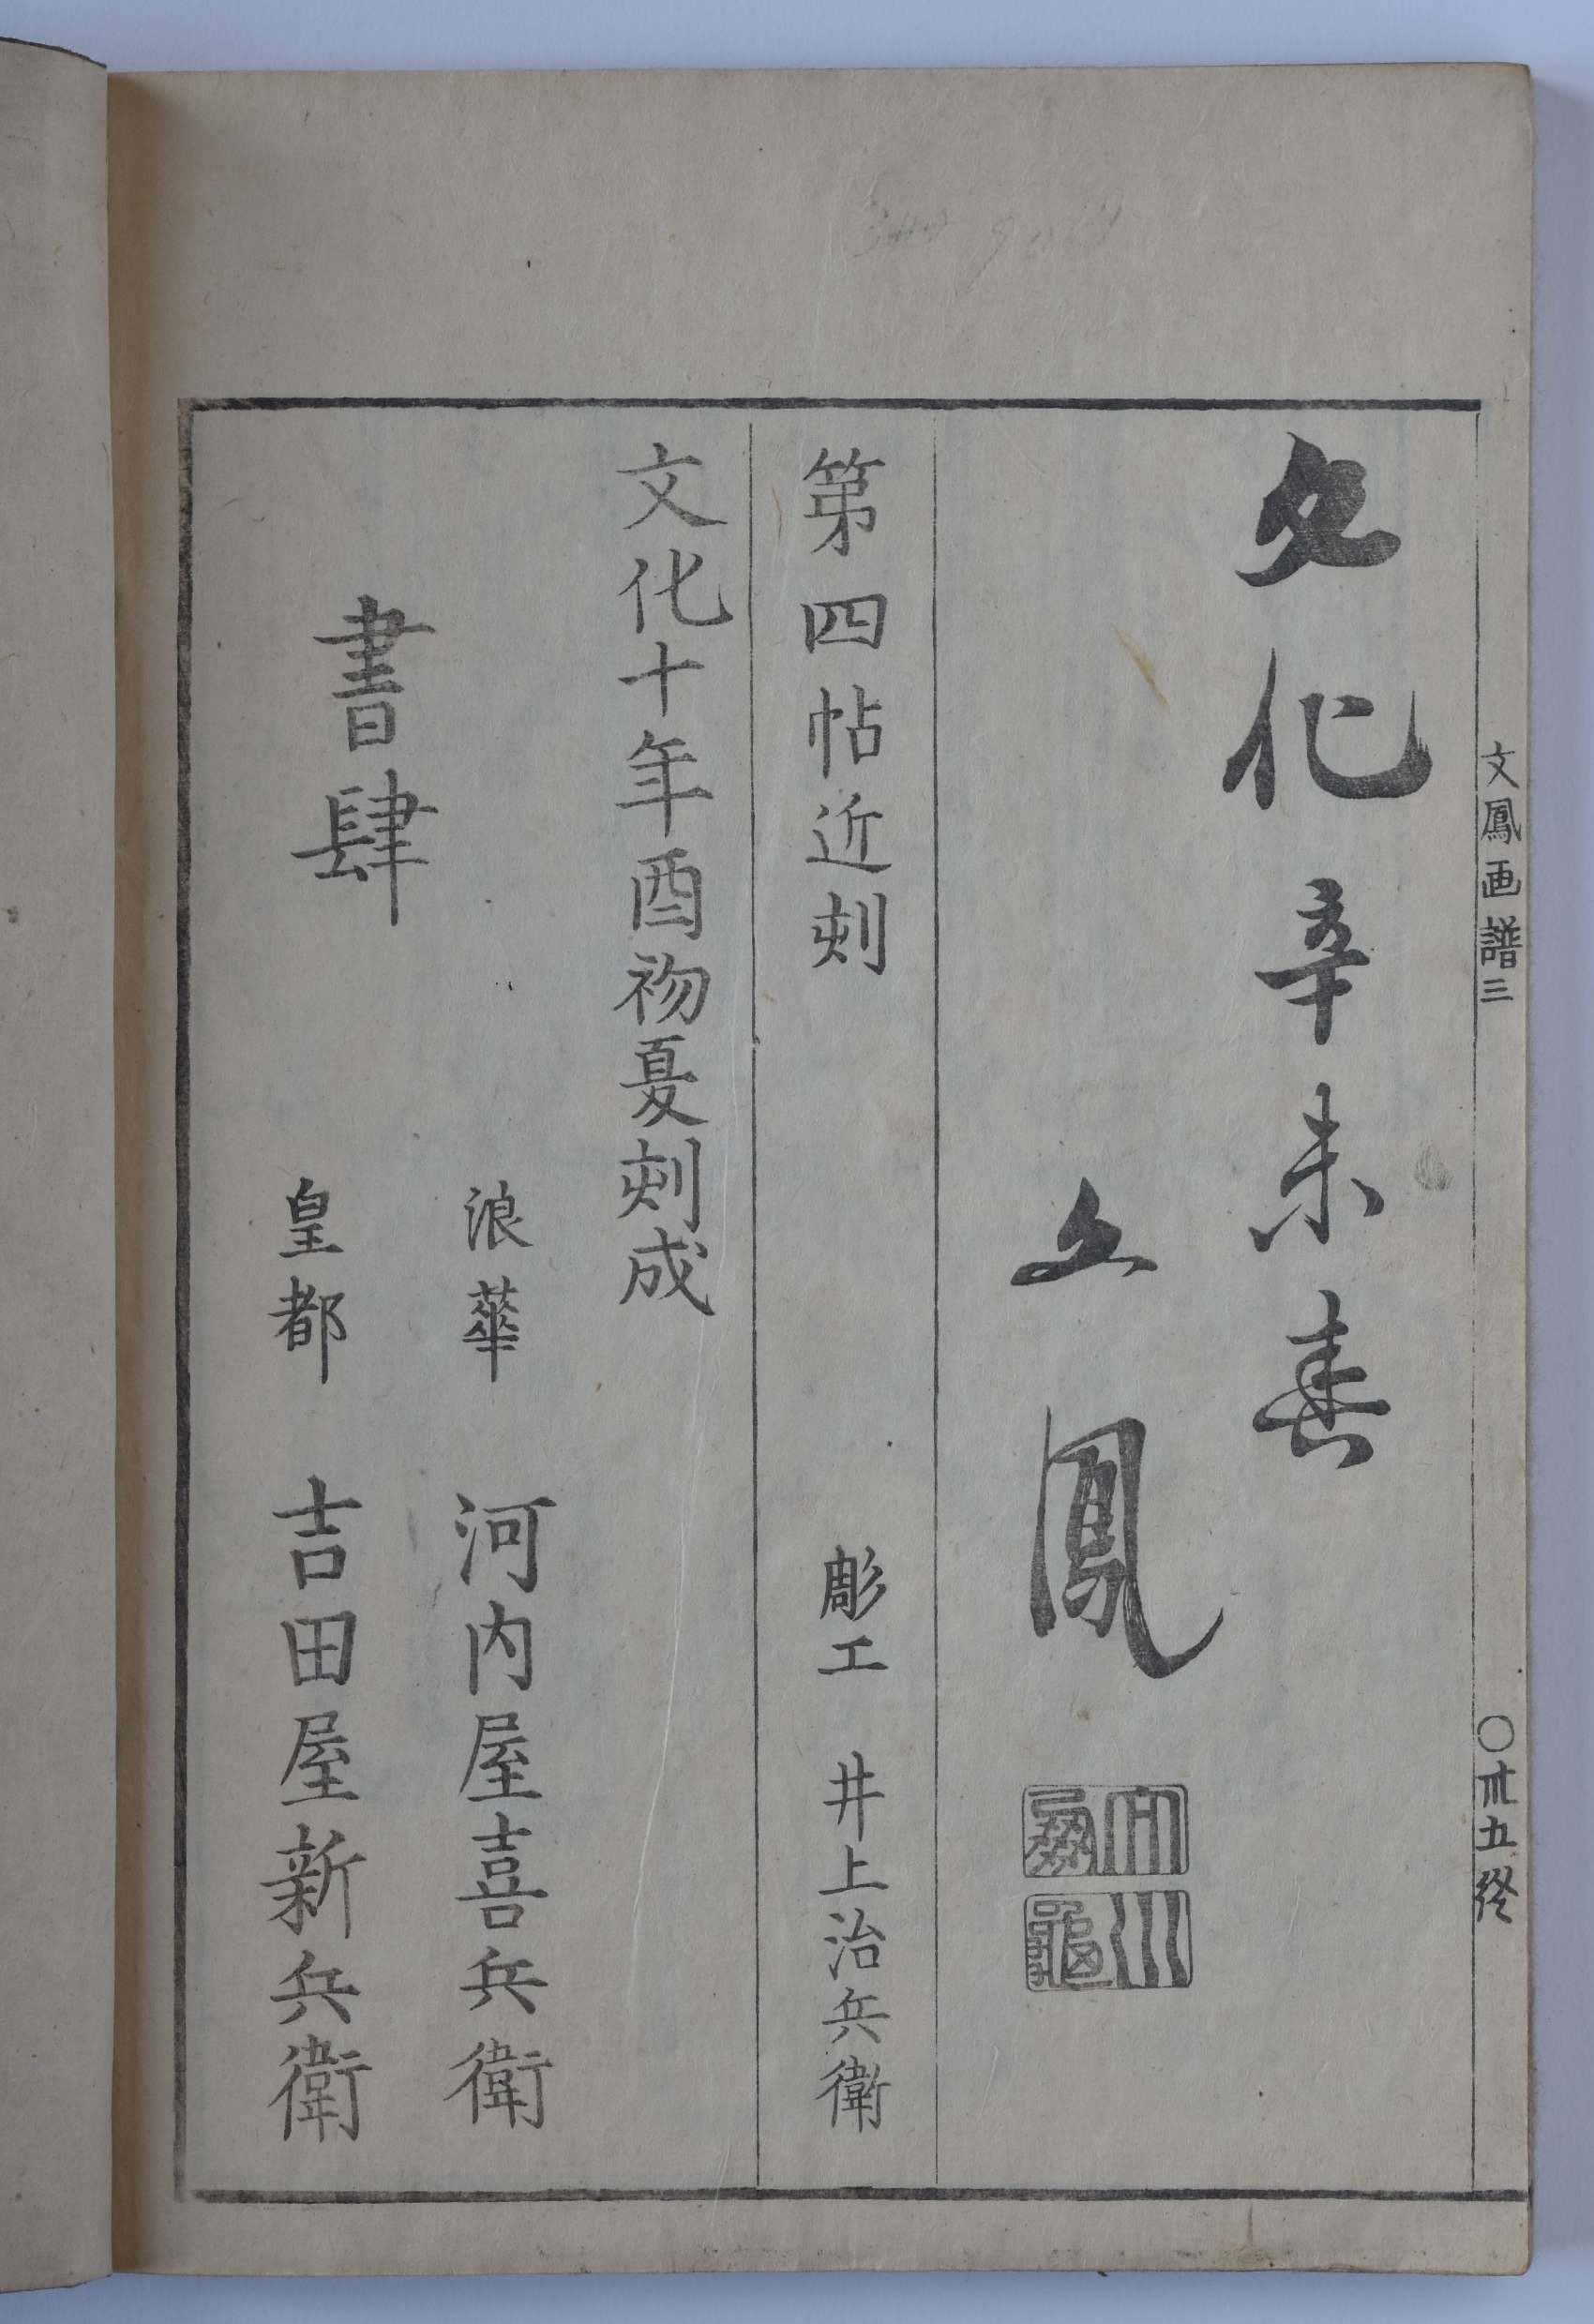 文鳳画譜三
〇卅五終
文化辛未春
文鳳
第四帖近刻
彫工 井上治兵衛
文化十年酉初夏刻成
浪華 河内屋喜兵衛
書肆
皇都 吉田屋新兵衛